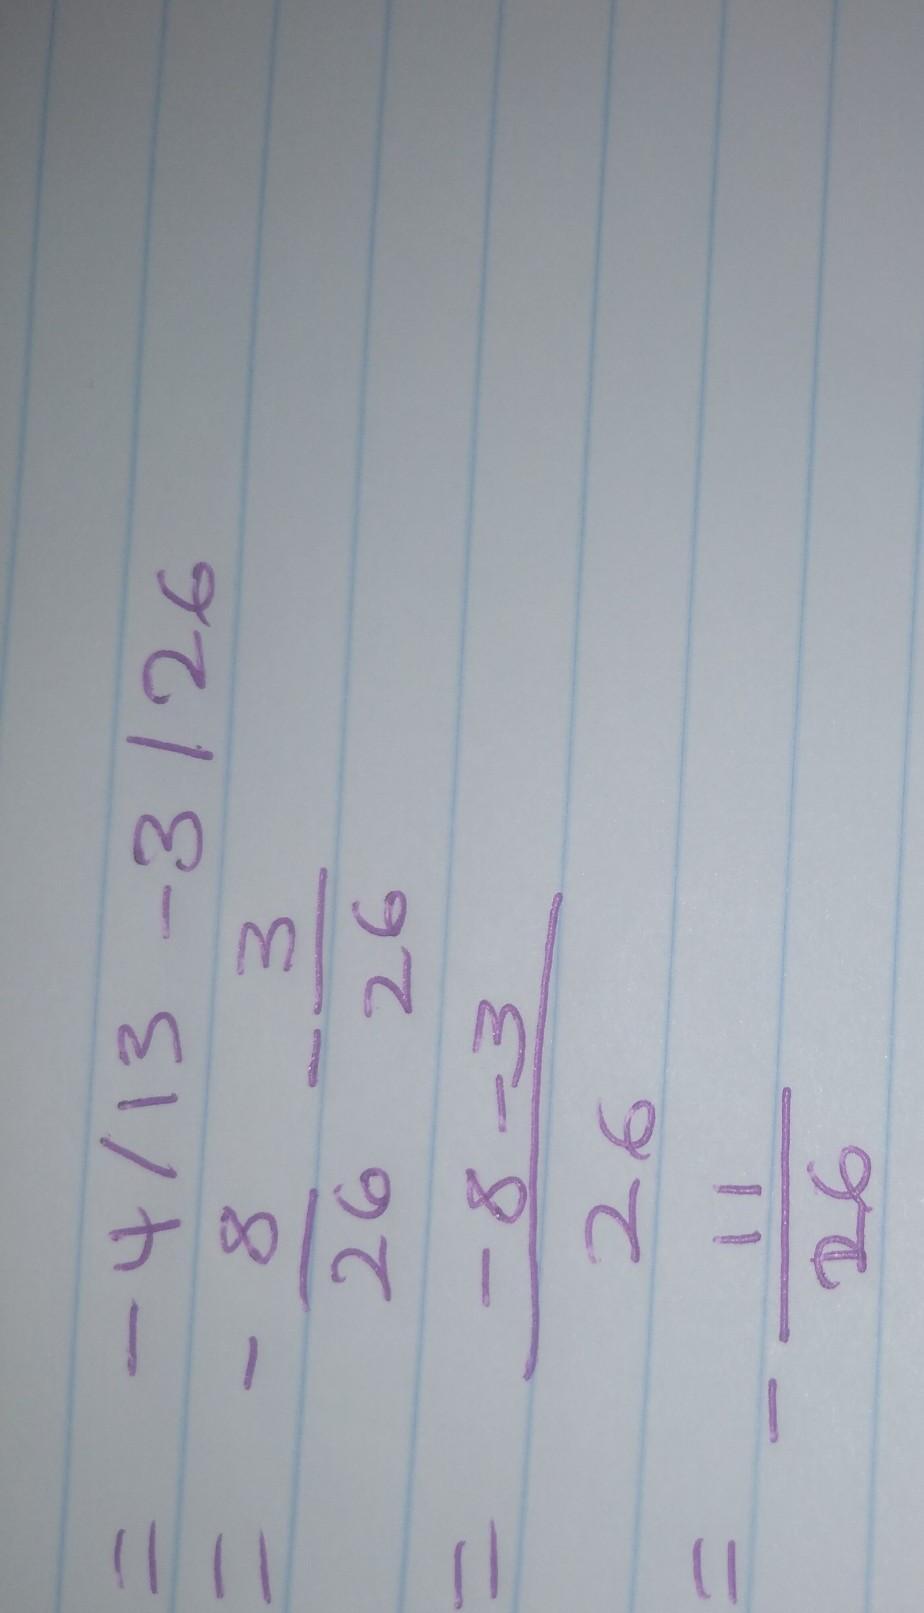 = - 4/13 - 3/26
= - 8/26 - 3/26
= -8-3/26
= - 11/26